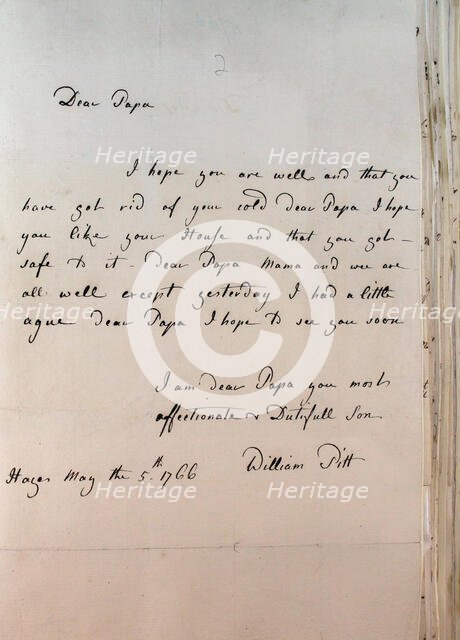 2
Dear Papa
I hope you are well and that you
have got rid of your cold dear Papa I hope
you like your House and that you got
safe to it - dear Papa Mama and we are
all well except yesterday I had a little
ague dear Papa I hope to see you soon
I am dear Papa you most
affectionate & Dutifull Son
William Pitt
Hayes May the 5th. 1766
Heritage
Heritage
Heritage
Heritage
Heritage
Heritage
Heritage
C